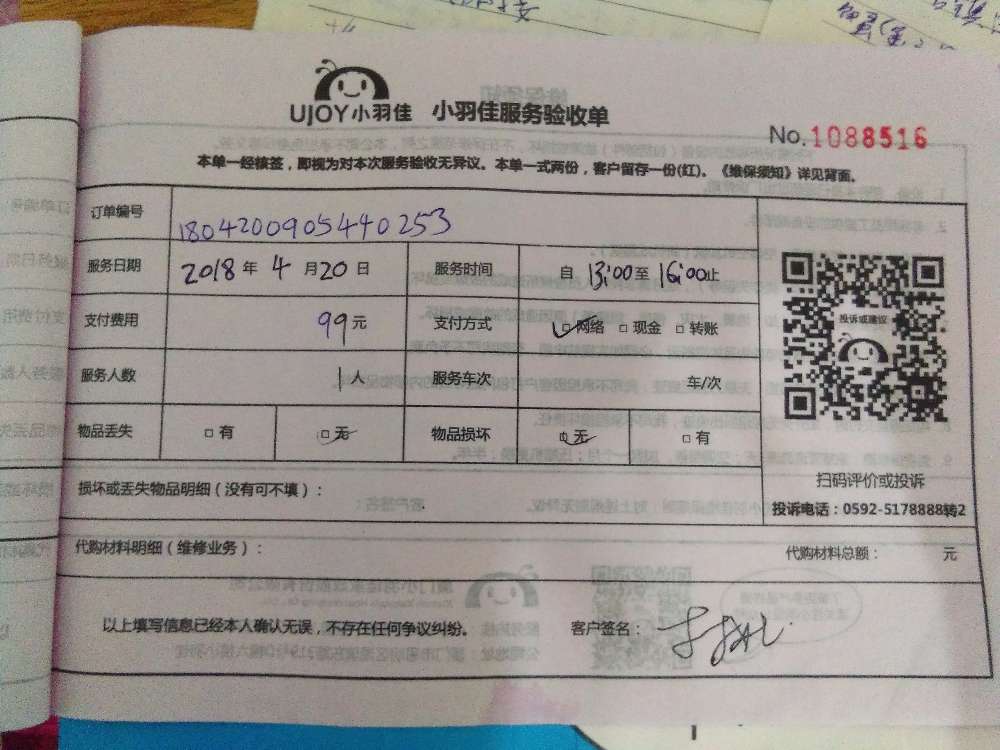 UJOY小羽佳 小羽佳服务验收单
No.1088516
本单一经核签，即视为对本次服务验收无异议。本单一式两份，客户留存一份(红)。《维保须知》详见背面。
订单编号 1804200905440253
服务日期 2018年4月20日 服务时间 自13:00至16:00止
支付费用 99元 支付方式 ☑网络 □现金 □转账
服务人数 1人 服务车次 车/次
物品丢失 □有 ☑无 物品损坏 ☑无 □有
投诉或建议
扫码评价或投诉
投诉电话：0592-5178888转2
损坏或丢失物品明细（没有可不填）：
代购材料明细（维修业务）： 代购材料总额： 元
以上填写信息已经本人确认无误，不存在任何争议纠纷。 客户签名：